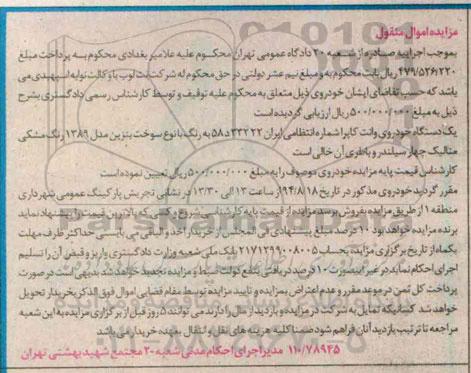 مزایده اموال منقول
بموجب اجرائیه صادره از شعبه ۲۰ دادگاه عمومی تهران محکوم علیه علامیر بغدادی محکوم به پرداخت مبلغ
۴۷۹/۵۲۶/۲۲۰ ریال بابت محکوم به و مبلغ نیم عشر دولتی در حق محکوم له شرکت بت لوب با وکالت نوابه اسپهبدی می
باشد که حسب تقاضای ایشان خودروی ذیل متعلق به محکوم علیه توقیف و توسط کارشناس رسمی دادگستری بشرح
ذیل به مبلغ ۵۰۰/۰۰۰/۰۰۰ ریال ارزیابی گردیده است
یک دستگاه خودروی وانت کاپرا شماره انتظامی ایران ۲۲ ۳۳۲ د ۵۸ به رنگ با نوع سوخت بنزین مدل ۱۳۸۹ رنگ مشکی
متالیک چهار سیلندر و باطری آن خالی است
کارشناس قیمت پایه مزایده خودروی موصوف را به مبلغ ۵۰۰/۰۰۰/۰۰۰ ریال تعیین نموده است
مقرر گردید خودروی مذکور در تاریخ ۹۴/۸/۱۸ از ساعت ۱۳ الی ۱۳/۳۰ در نشانی تجریش پارکینگ عمومی شهرداری
منطقه ۱ از طریق مزایده بفروش برسد مزایده از قیمت پایه کارشناسی شروع و کسی که بالاترین قیمت را پیشنهاد نماید
برنده مزایده خواهد بود ۱۰ درصد مبلغ پیشنهادی فی المجلس از خریدار اخذ و الباقی می بایستی حداکثر ظرف مهلت
یکماه از تاریخ برگزاری مزایده بحساب ۲۱۷۱۲۹۹۰۰۸۰۰۵ بانک ملی شعبه وزارت دادگستری واریز و قبض آن را تسلیم
اجرای احکام نماید در غیر اینصورت ۱۰ درصد دریافتی بنفع دولت ضبط و مزایده تجدید خواهد شد بدیهی است در صورت
پرداخت کل ثمن در موعد مقرر و عدم اعتراض بمزایده و تایید مزایده توسط مقام قضایی اموال فوق الذکر بخریدار تحویل
خواهد شد کسانیکه تمایل به شرکت در مزایده و بازدید از مال را دارند می توانند ۵ روز قبل از برگزاری مزایده به این شعبه
مراجعه تا ترتیب بازدید آنان فراهم شود ضمنا کلیه هزینه های نقل و انتقال بعهده خریدار می باشد
۱۱۰/۷۸۹۴۵ مدیر اجرای احکام مدنی شعبه ۲۰ مجتمع شهید بهشتی تهران